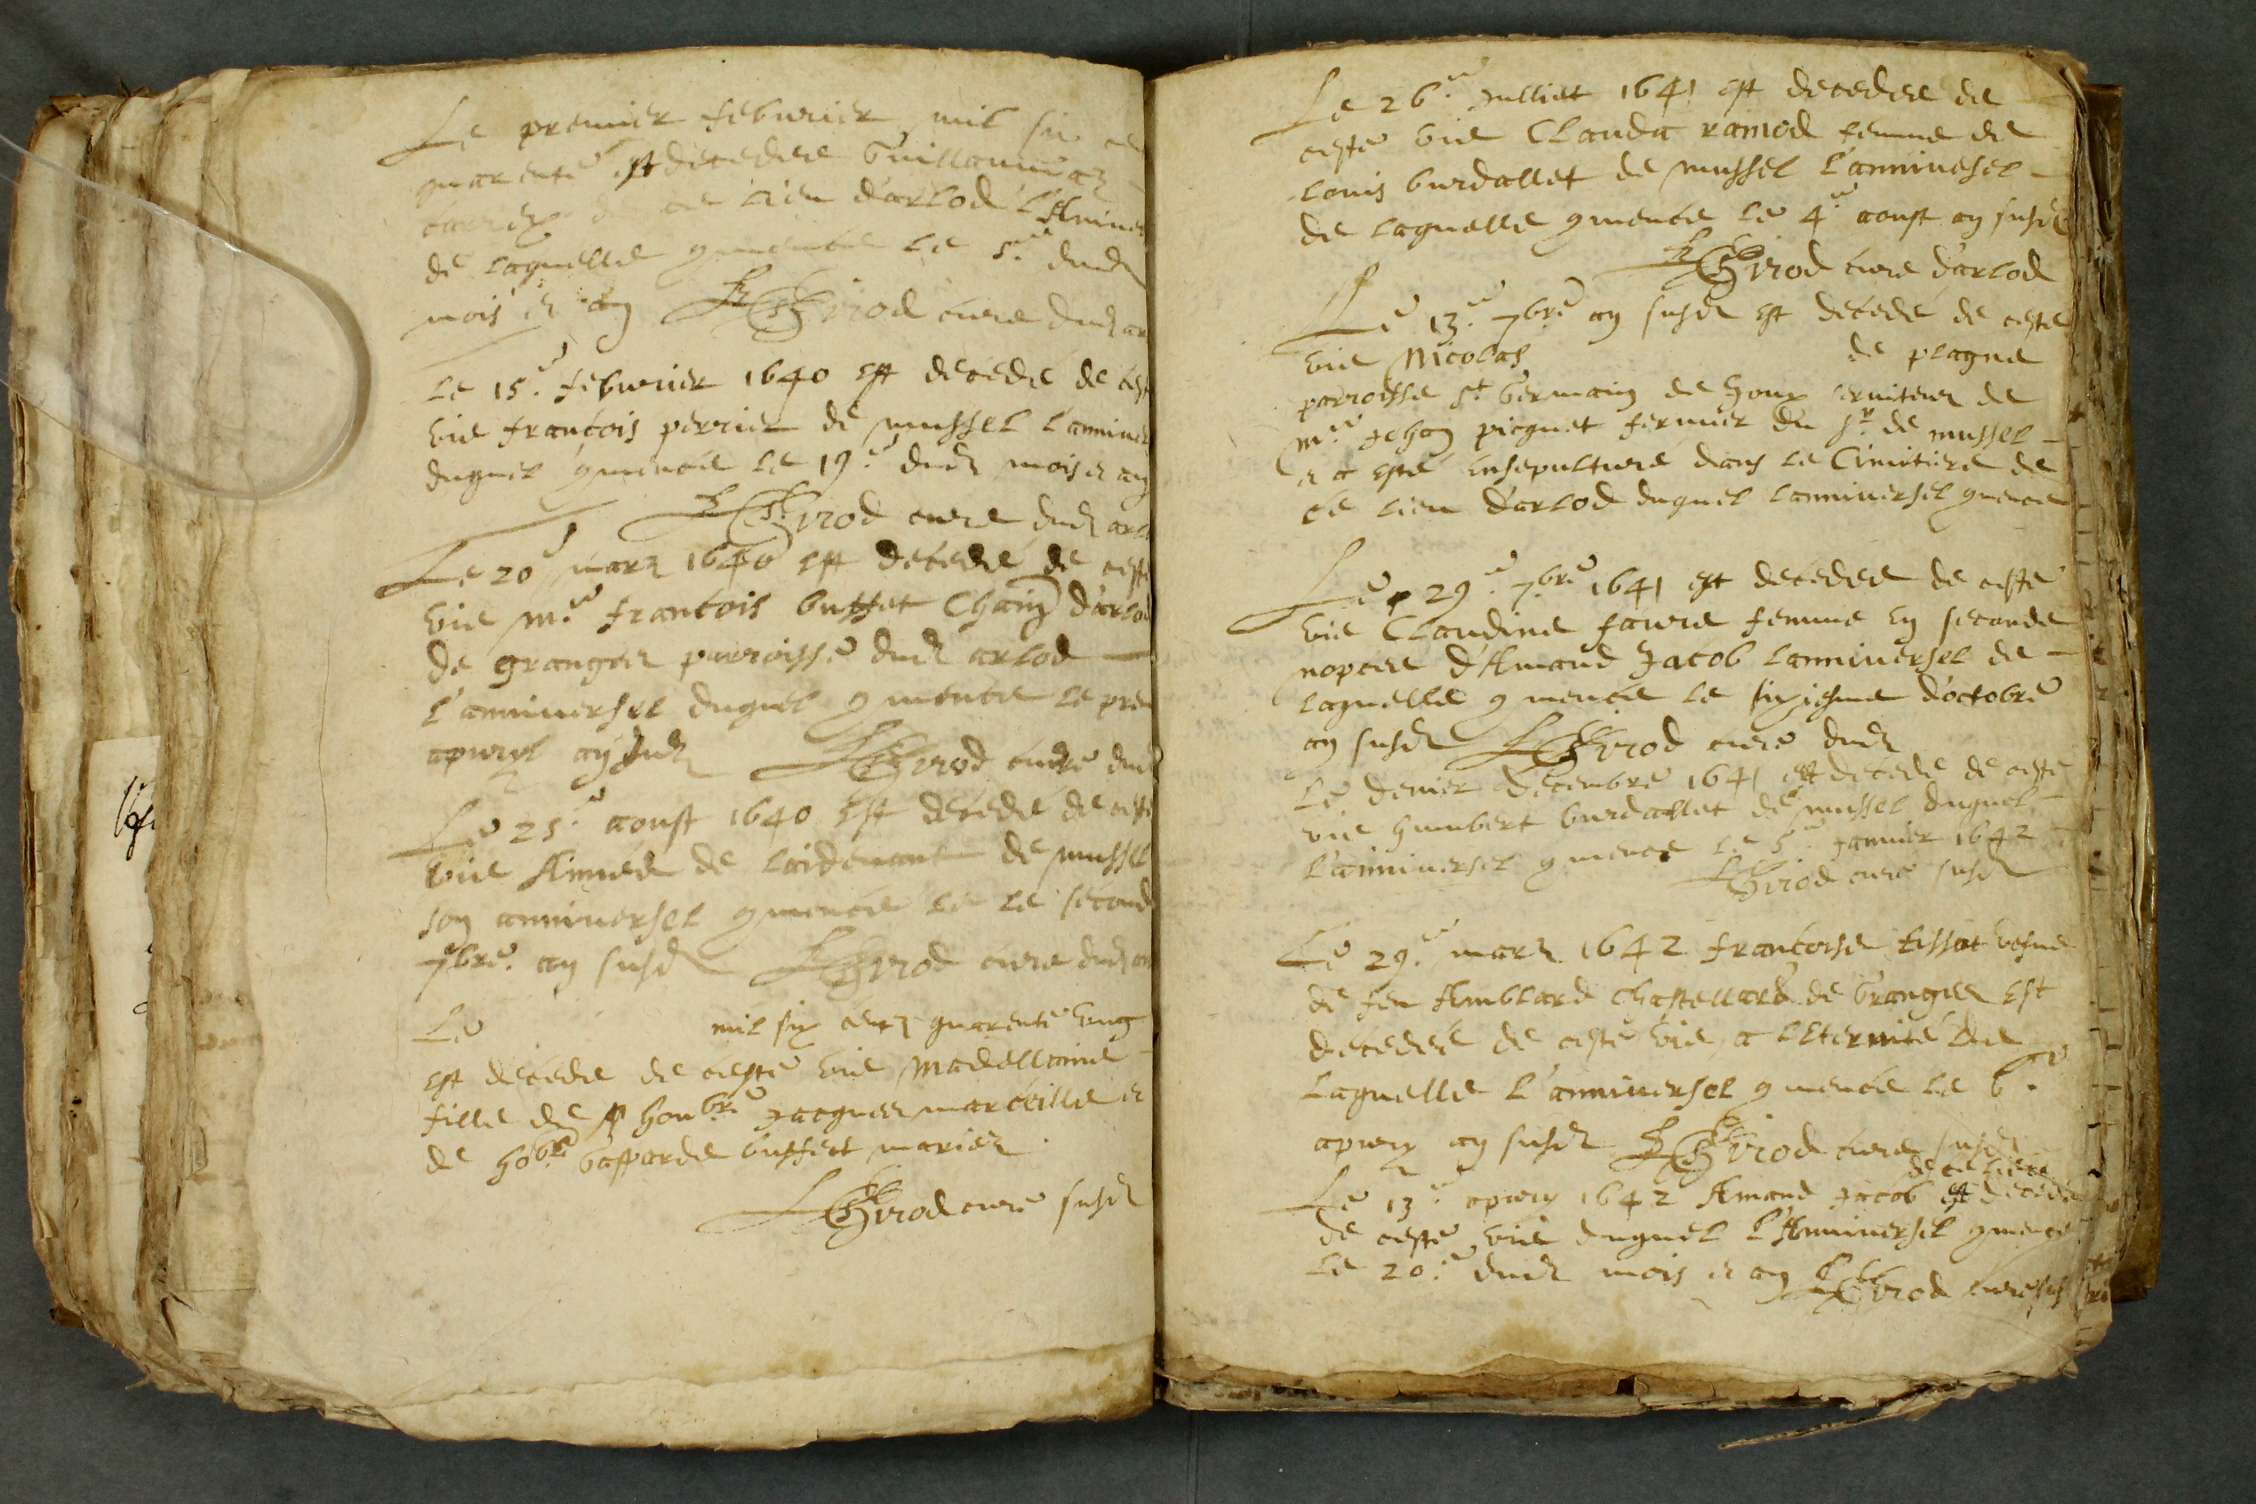 Le premier febvrier mil six ce
quarente est decedee Guillauma
de ce lieu d'arlod l'Aniver
de laquelle gmence le 5.e dud
mois et an Girod cure dud ar
Le 15.e febvrier 1640 est decedé de cest
vie francois perrier de mussel l'anniver
duquel gmence le 19.e dud mois et an
Girod cure dud arl
Le 20 mars 1640 est decedé de ceste
vie m.e francois buffet d'arlod
de granges parroisse dud arlod
l'anniversel duquel gmence le pre
apvril an dud Girod cure dud
Le 25.e aoust 1640 est decedé de ceste
vie Aimée de de mussel
son anniversel gmence le le second
7bre. an susd Girod cure dud
Le mil six cents quarente ung
est decedee de ceste vie Madellaine
fille de honbre Jacques marceille et
de hobe gasparde buffet mariez.
Girod cure susd
Le 26.e Julliet 1641 est decedee de
ceste vie Clauda ramod femme de
Louis burdallet de mussel l'annivesel
de laquelle gmence le 4.e aoust an susd
Girod cure d'arlod
Le 13.e 7bre an susd est decedé de ceste
vie Nicolas de plagne
parroisse St Germain de Joux serviteur de
m.e Jehan picquet fermier du sr de mussel
et a esté ensepulture dans le Cimitiere de
ce lieu d'arlod duquel lanniversel gmence
Le 29.e 7bre 1641 est decedee de ceste
vie Claudine favre femme en seconde
nopces d'Amand Jacob lanniversel de
laquelle gmence le sixiesme d'octobre
an susd Girod cure dud
Le denier decembre 1641 est decede de ceste
vie humbert burdallet de mussel duquel
l'anniversel gmence le 5.e Janvier 1642
Girod cure susd
Le 29.e mars 1642 francoise tissot vefve
de feu Amblard Chastellard de Granges est
decedee de ceste vie a leternité de
Laquelle l'anniversel gmence le 6.e
apvril an susd Girod cure susd
de ce lieu
Le 13.e apvril 1642 Amand Jacob est decede
de ceste vie duquel l'Anniversel gmence
Le 20.e dud mois et an Girod cure sus